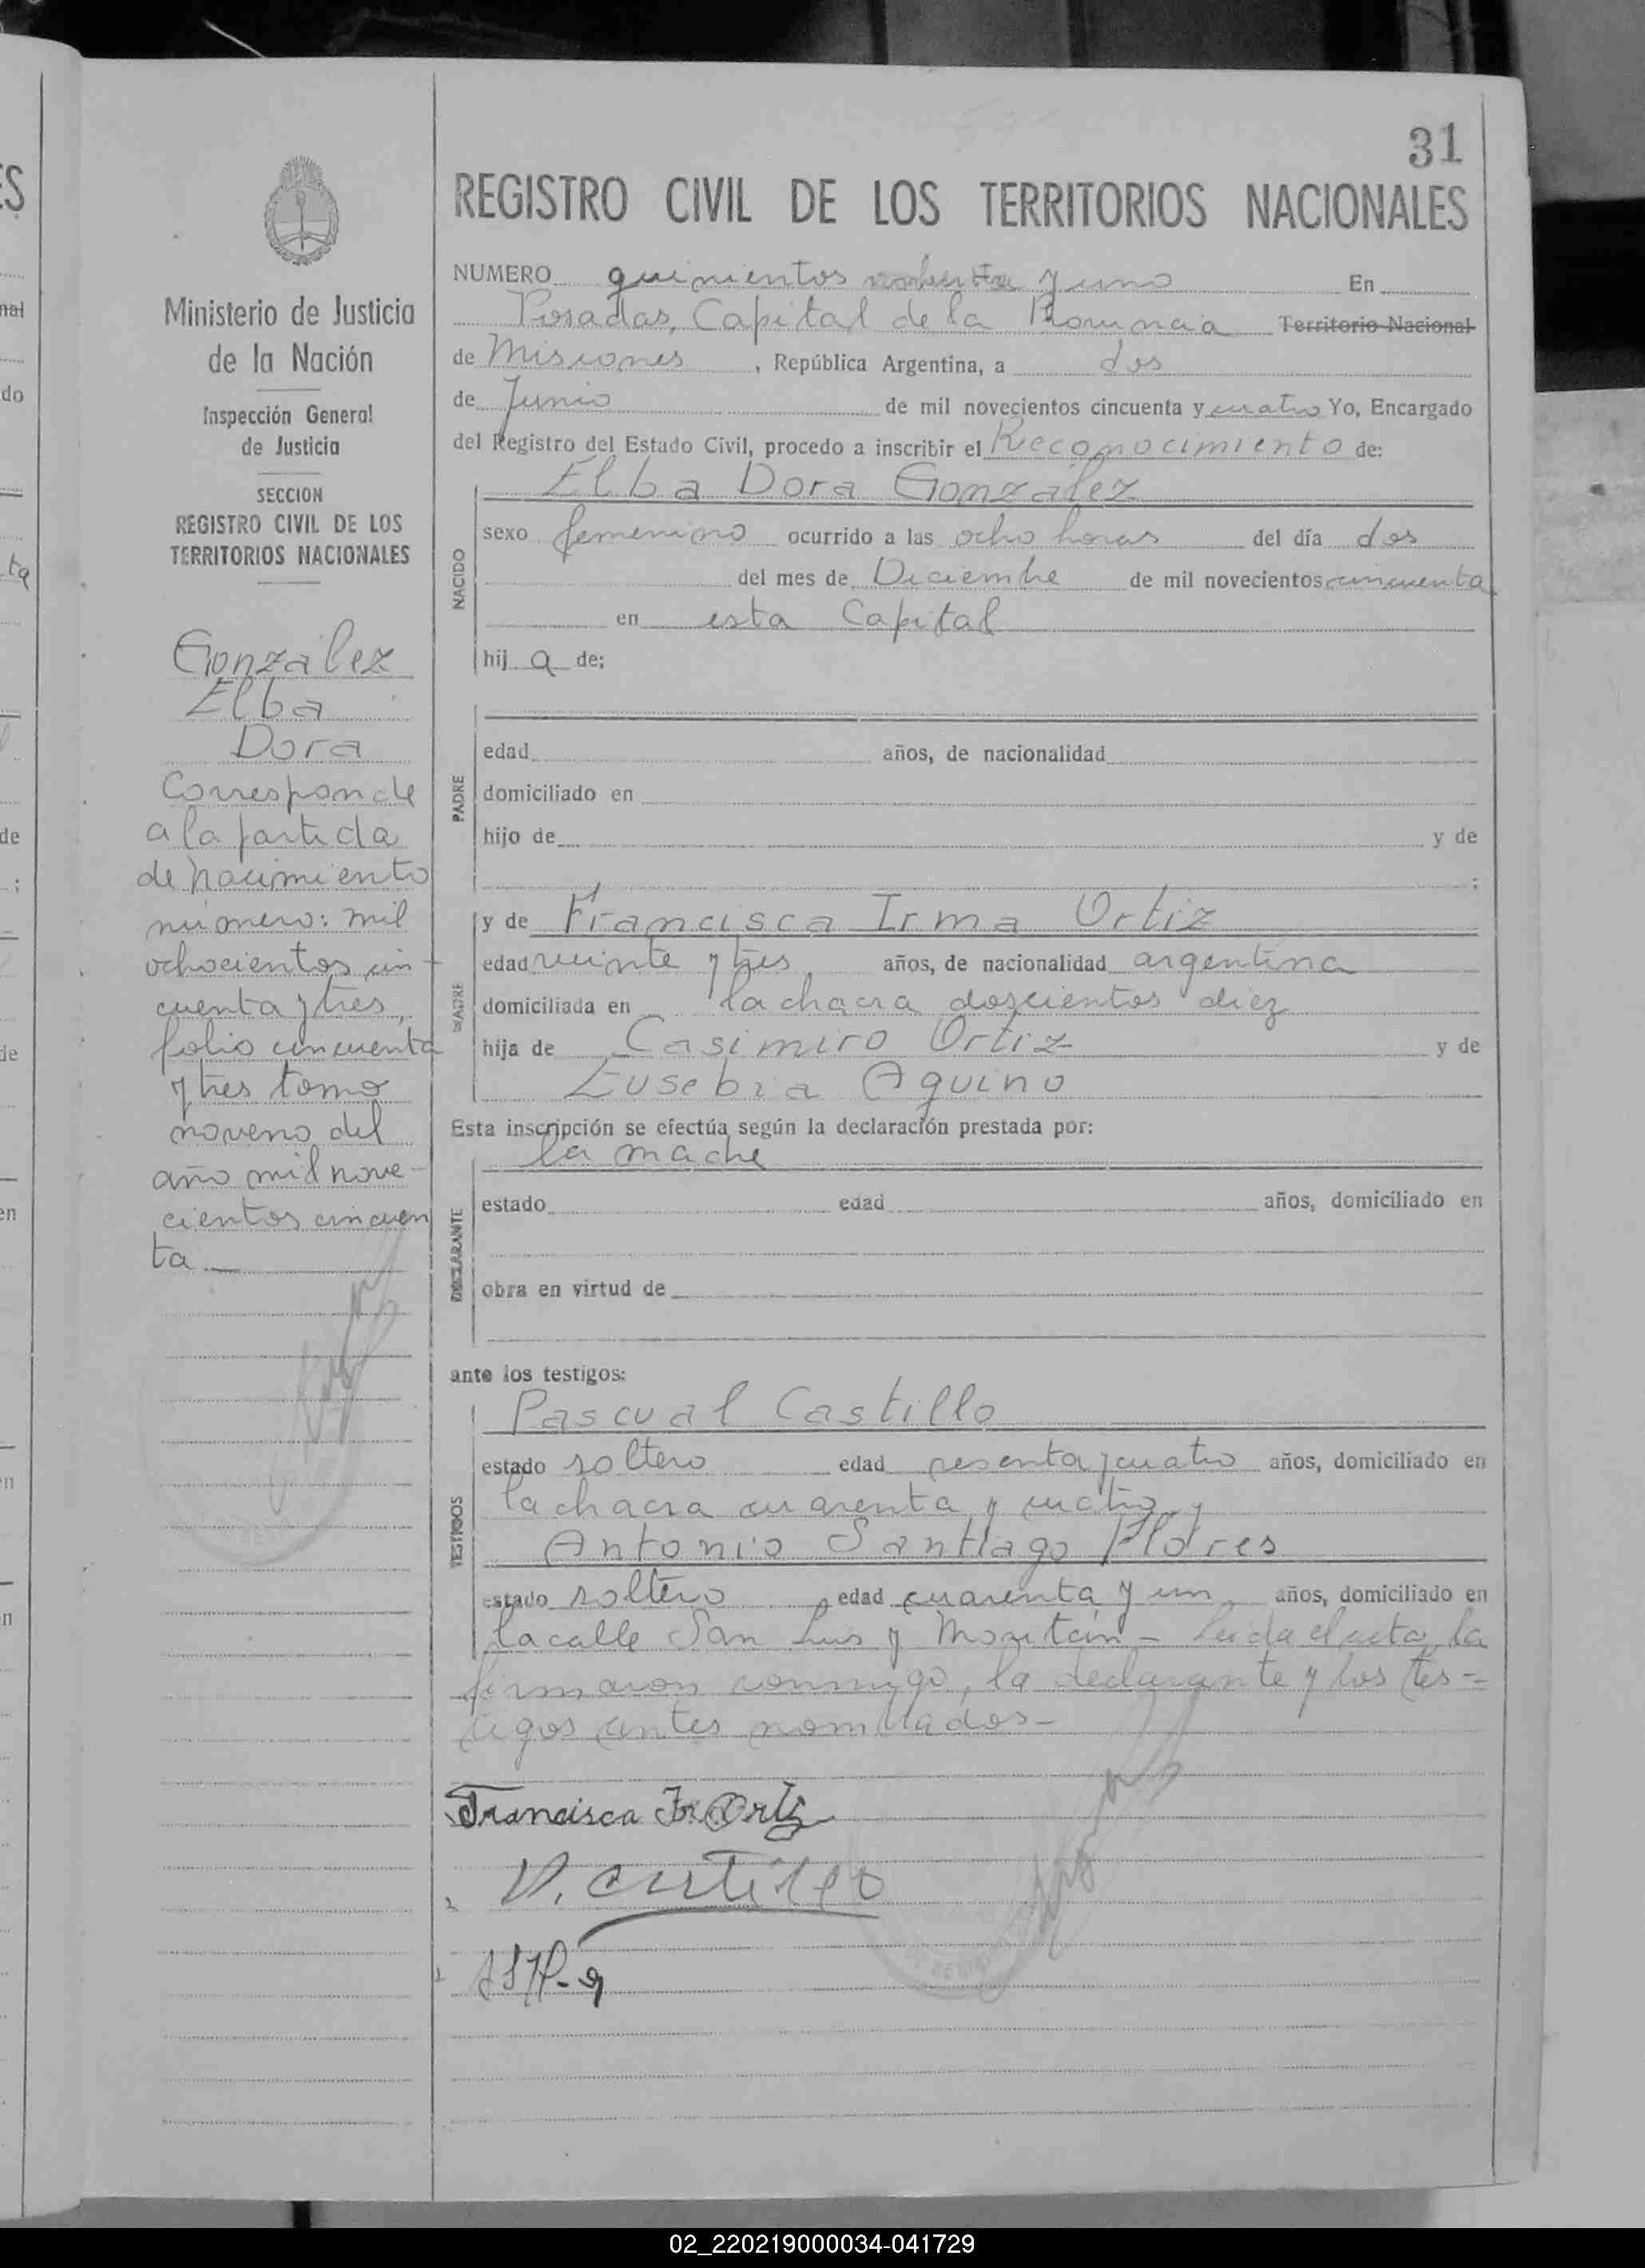 31
REGISTRO CIVIL DE LOS TERRITORIOS NACIONALES
Ministerio de Justicia
de la Nación
Inspección General
de Justicia
SECCION
REGISTRO CIVIL DE LOS
TERRITORIOS NACIONALES
Gonzalez
Elba
Dora
Corresponde
a la partida
de nacimiento
número: mil
ochocientos cin-
cuenta y tres,
folio cincuenta
y tres tomo
noveno del
año mil nove-
cientos cincuen
ta.—
NUMERO quinientos y uno En
Posadas, Capital de la Provincia Territorio Nacional
de Misiones, República Argentina, a dos
de Junio de mil novecientos cincuenta y cuatro Yo, Encargado
del Registro del Estado Civil, procedo a inscribir el Reconocimiento de:
Elba Dora Gonzalez
NACIDO
sexo femenino ocurrido a las ocho horas del día dos
del mes de Diciembre de mil novecientos cincuenta
en esta Capital
hij a de;
PADRE
edad años, de nacionalidad
domiciliado en
hijo de y de
;
MADRE
y de Francisca Irma Ortiz
edad veinte y tres años, de nacionalidad argentina
domiciliada en la chacra doscientos diez
hija de Casimiro Ortiz y de
Eusebia Aquino
Esta inscripción se efectúa según la declaración prestada por:
la madre
DECLARANTE
estado edad años, domiciliado en
obra en virtud de
ante los testigos:
Pascual Castillo
TESTIGOS
estado soltero edad sesenta y cuatro años, domiciliado en
la chacra cuarenta y cuatro y
Antonio Santiago Flores
estado soltero edad cuarenta y un años, domiciliado en
la calle San Luis y - Leida el acta, la
firmaron conmigo, la declarante y los tes-
tigos antes nombrados-
Francisca I. Ortiz
P. Castillo
02_220219000034-041729